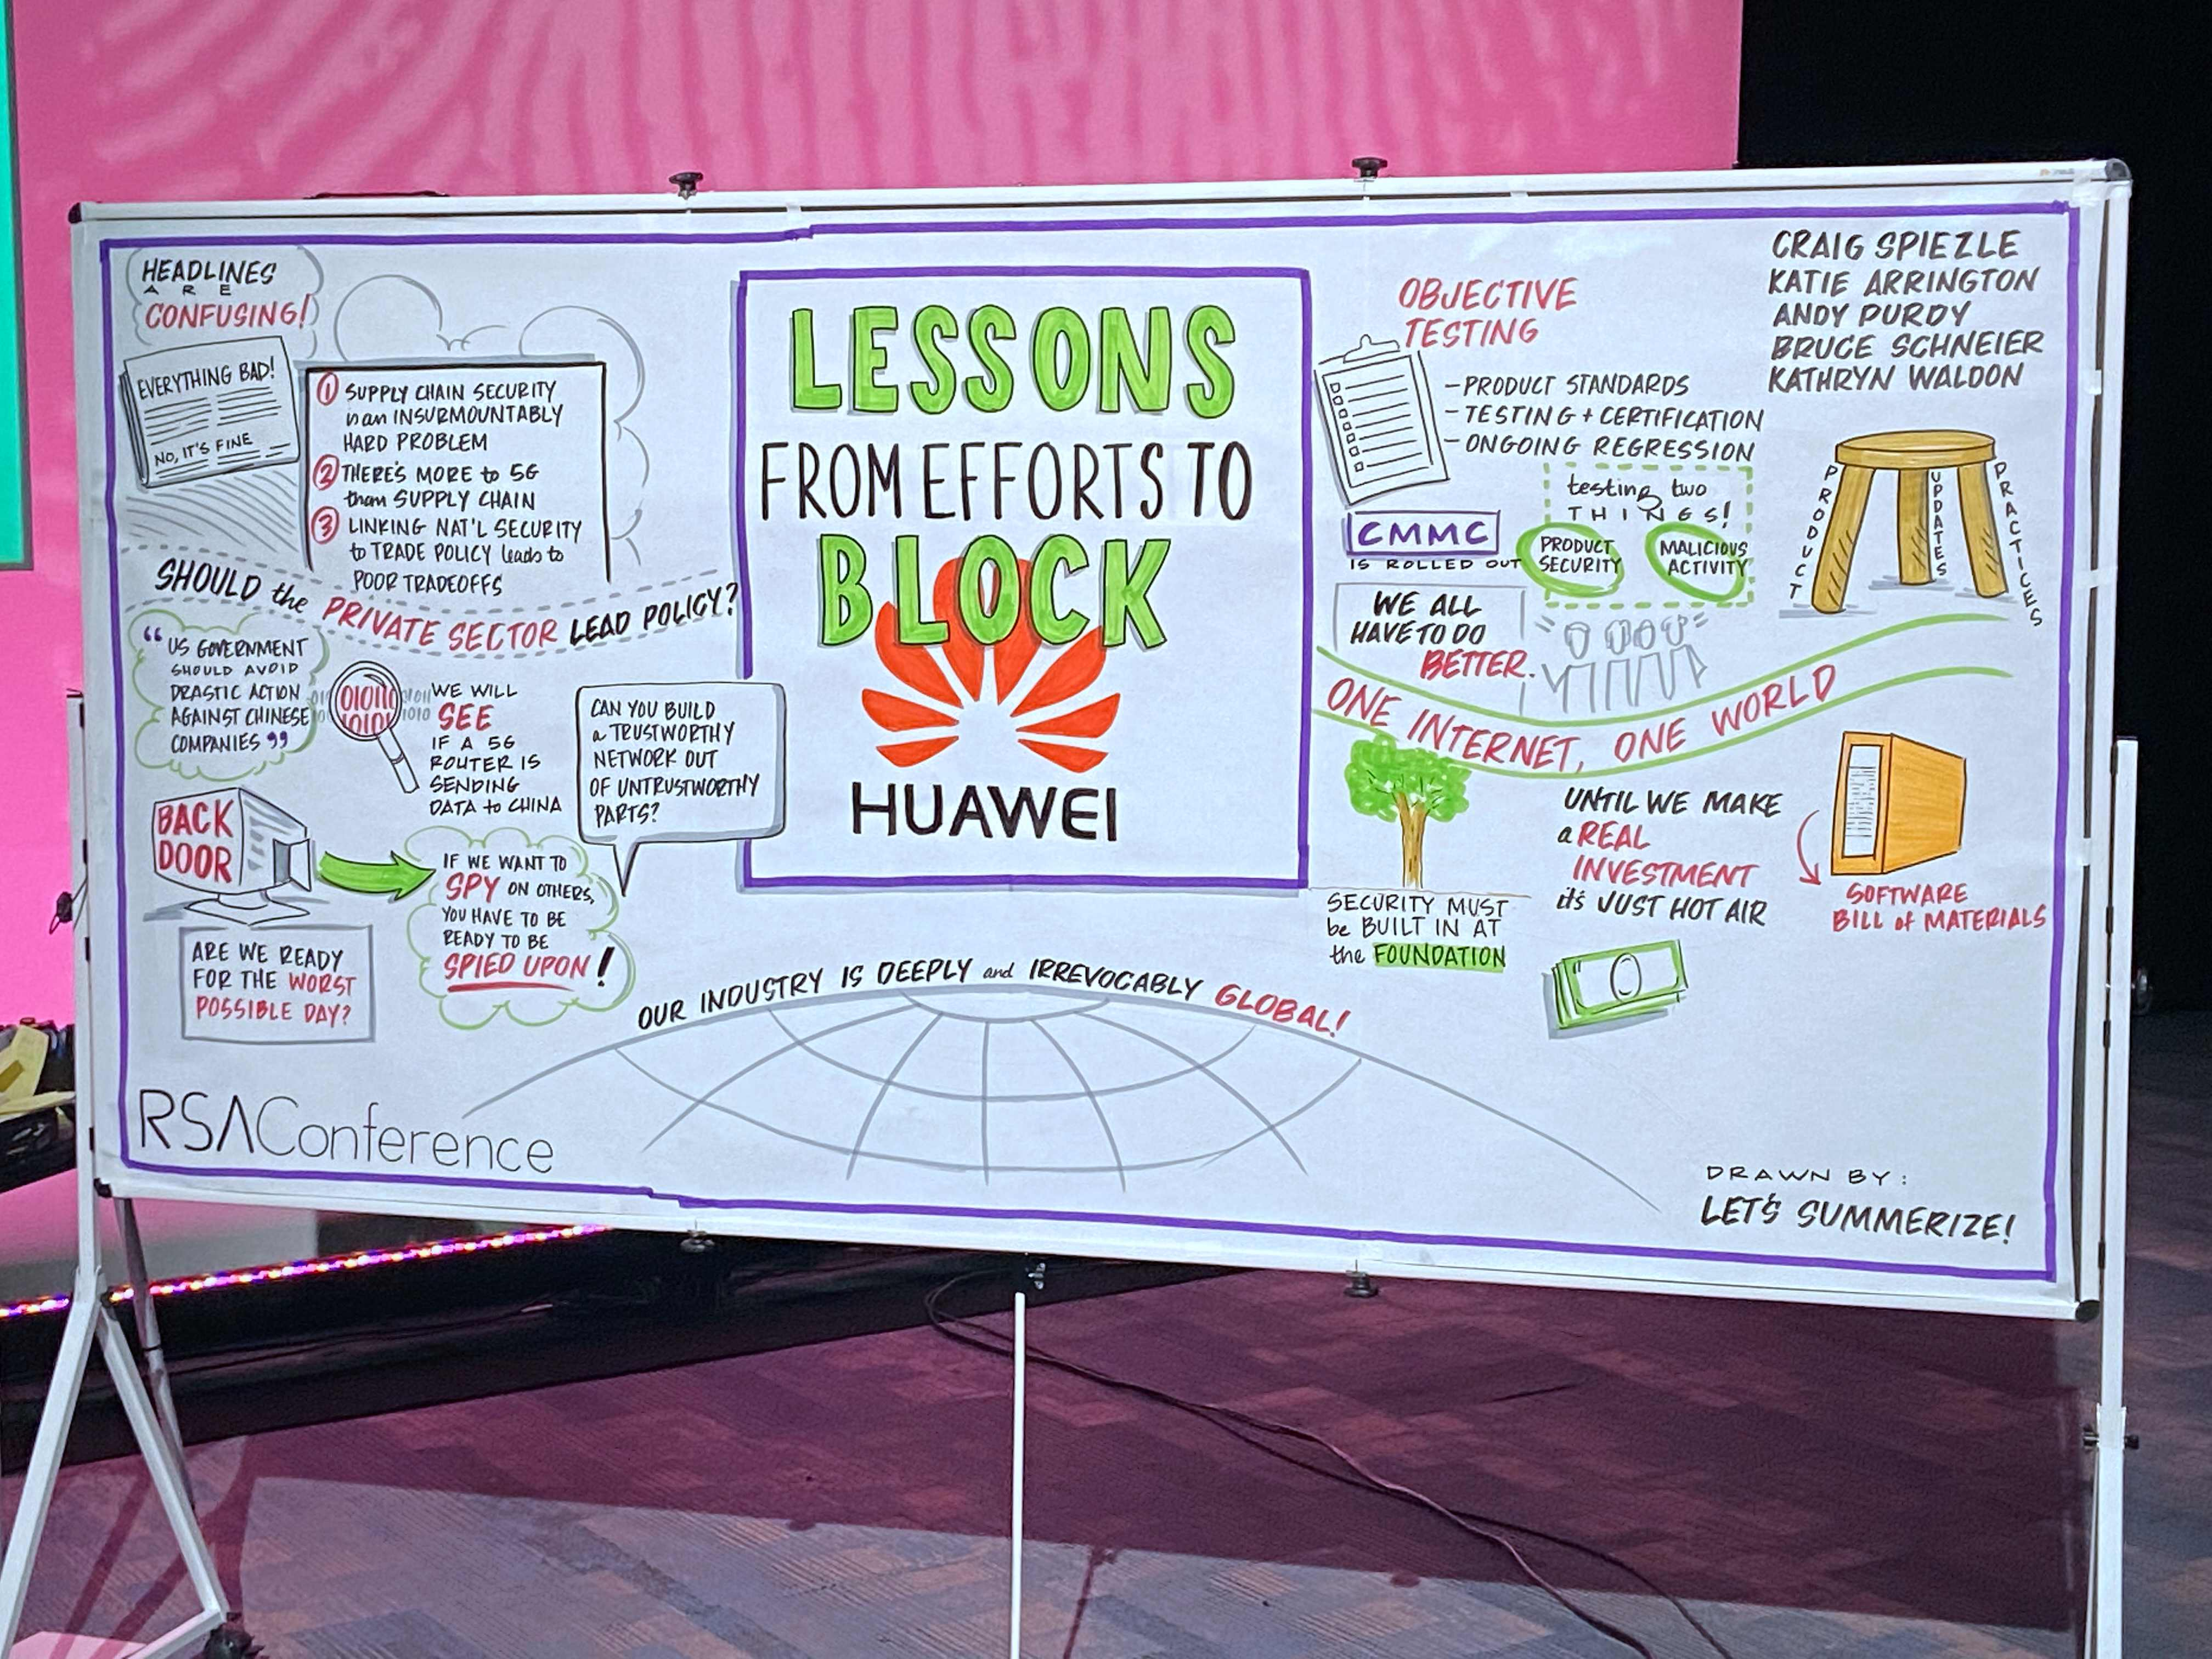 HEADLINES
ARE
CONFUSING!
EVERYTHING BAD!
NO, IT'S FINE
1 SUPPLY CHAIN SECURITY
is an INSURMOUNTABLY
HARD PROBLEM
2 THERE'S MORE to 5G
than SUPPLY CHAIN
3 LINKING NAT'L SECURITY
to TRADE POLICY leads to
POOR TRADEOFFS
SHOULD the PRIVATE SECTOR LEAD POLICY?
“US GOVERNMENT
SHOULD AVOID
DRASTIC ACTION
AGAINST CHINESE
COMPANIES”
WE WILL
SEE
IF A 5G
ROUTER IS
SENDING
DATA to CHINA
CAN YOU BUILD
a TRUSTWORTHY
NETWORK OUT
OF UNTRUSTWORTHY
PARTS?
BACK
DOOR
IF WE WANT TO
SPY ON OTHERS,
YOU HAVE TO BE
READY TO BE
SPIED UPON!
ARE WE READY
FOR THE WORST
POSSIBLE DAY?
RSAConference
LESSONS
FROM EFFORTS TO
BLOCK
HUAWEI
OUR INDUSTRY IS DEEPLY and IRREVOCABLY GLOBAL!
OBJECTIVE
TESTING
- PRODUCT STANDARDS
- TESTING + CERTIFICATION
- ONGOING REGRESSION
testing two
THINGS!
PRODUCT
SECURITY
MALICIOUS
ACTIVITY
CMMC
IS ROLLED OUT
WE ALL
HAVE TO DO
BETTER.
CRAIG SPIEZLE
KATIE ARRINGTON
ANDY PURDY
BRUCE SCHNEIER
KATHRYN WALDON
PRODUCT
UPDATES
PRACTICES
ONE INTERNET, ONE WORLD
SECURITY MUST
be BUILT IN AT
the FOUNDATION
UNTIL WE MAKE
a REAL
INVESTMENT
it's JUST HOT AIR
SOFTWARE
BILL of MATERIALS
DRAWN BY:
LET'S SUMMERIZE!